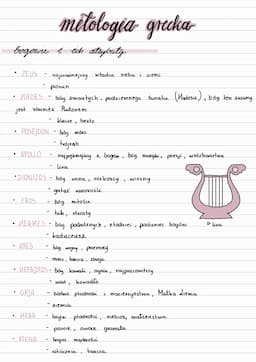 mitologia grecka
bogowie i ich atrybuty
• ZEUS - najważniejszy władca nieba i ziemi
- piorun
• HADES - bóg zmarłych, podziemnego świata (Hadesu), bóg ten zwany
jest również Plutonem
- klucze, berło
• POSEJDON - bóg mórz
- trójząb
• APOLLO - najpiękniejszy z bogów, bóg muzyki, poezji, wróżbiarstwa
- lira
• DIONIZOS - bóg wina, wiosny
- gałąź winorośli
• EROS - bóg miłości
- łuk, strzały
• HERMES - bóg podróżnych, złodziei, posłaniec bogów
- kaduceusz
• ARES - bóg wojny, przemocy
- tarcza, zbroja
• HEFAJSTOS - bóg kowali, ognia,
- młot, kowadło
• GAJA - płodności i macierzyństwa, Matka Ziemia
- ziemia
• HERA - bogini płodności, niebios, małżeństwa
- pawie, owoc granatu
• ATENA - bogini mądrości
- włócznia, tarcza
lira